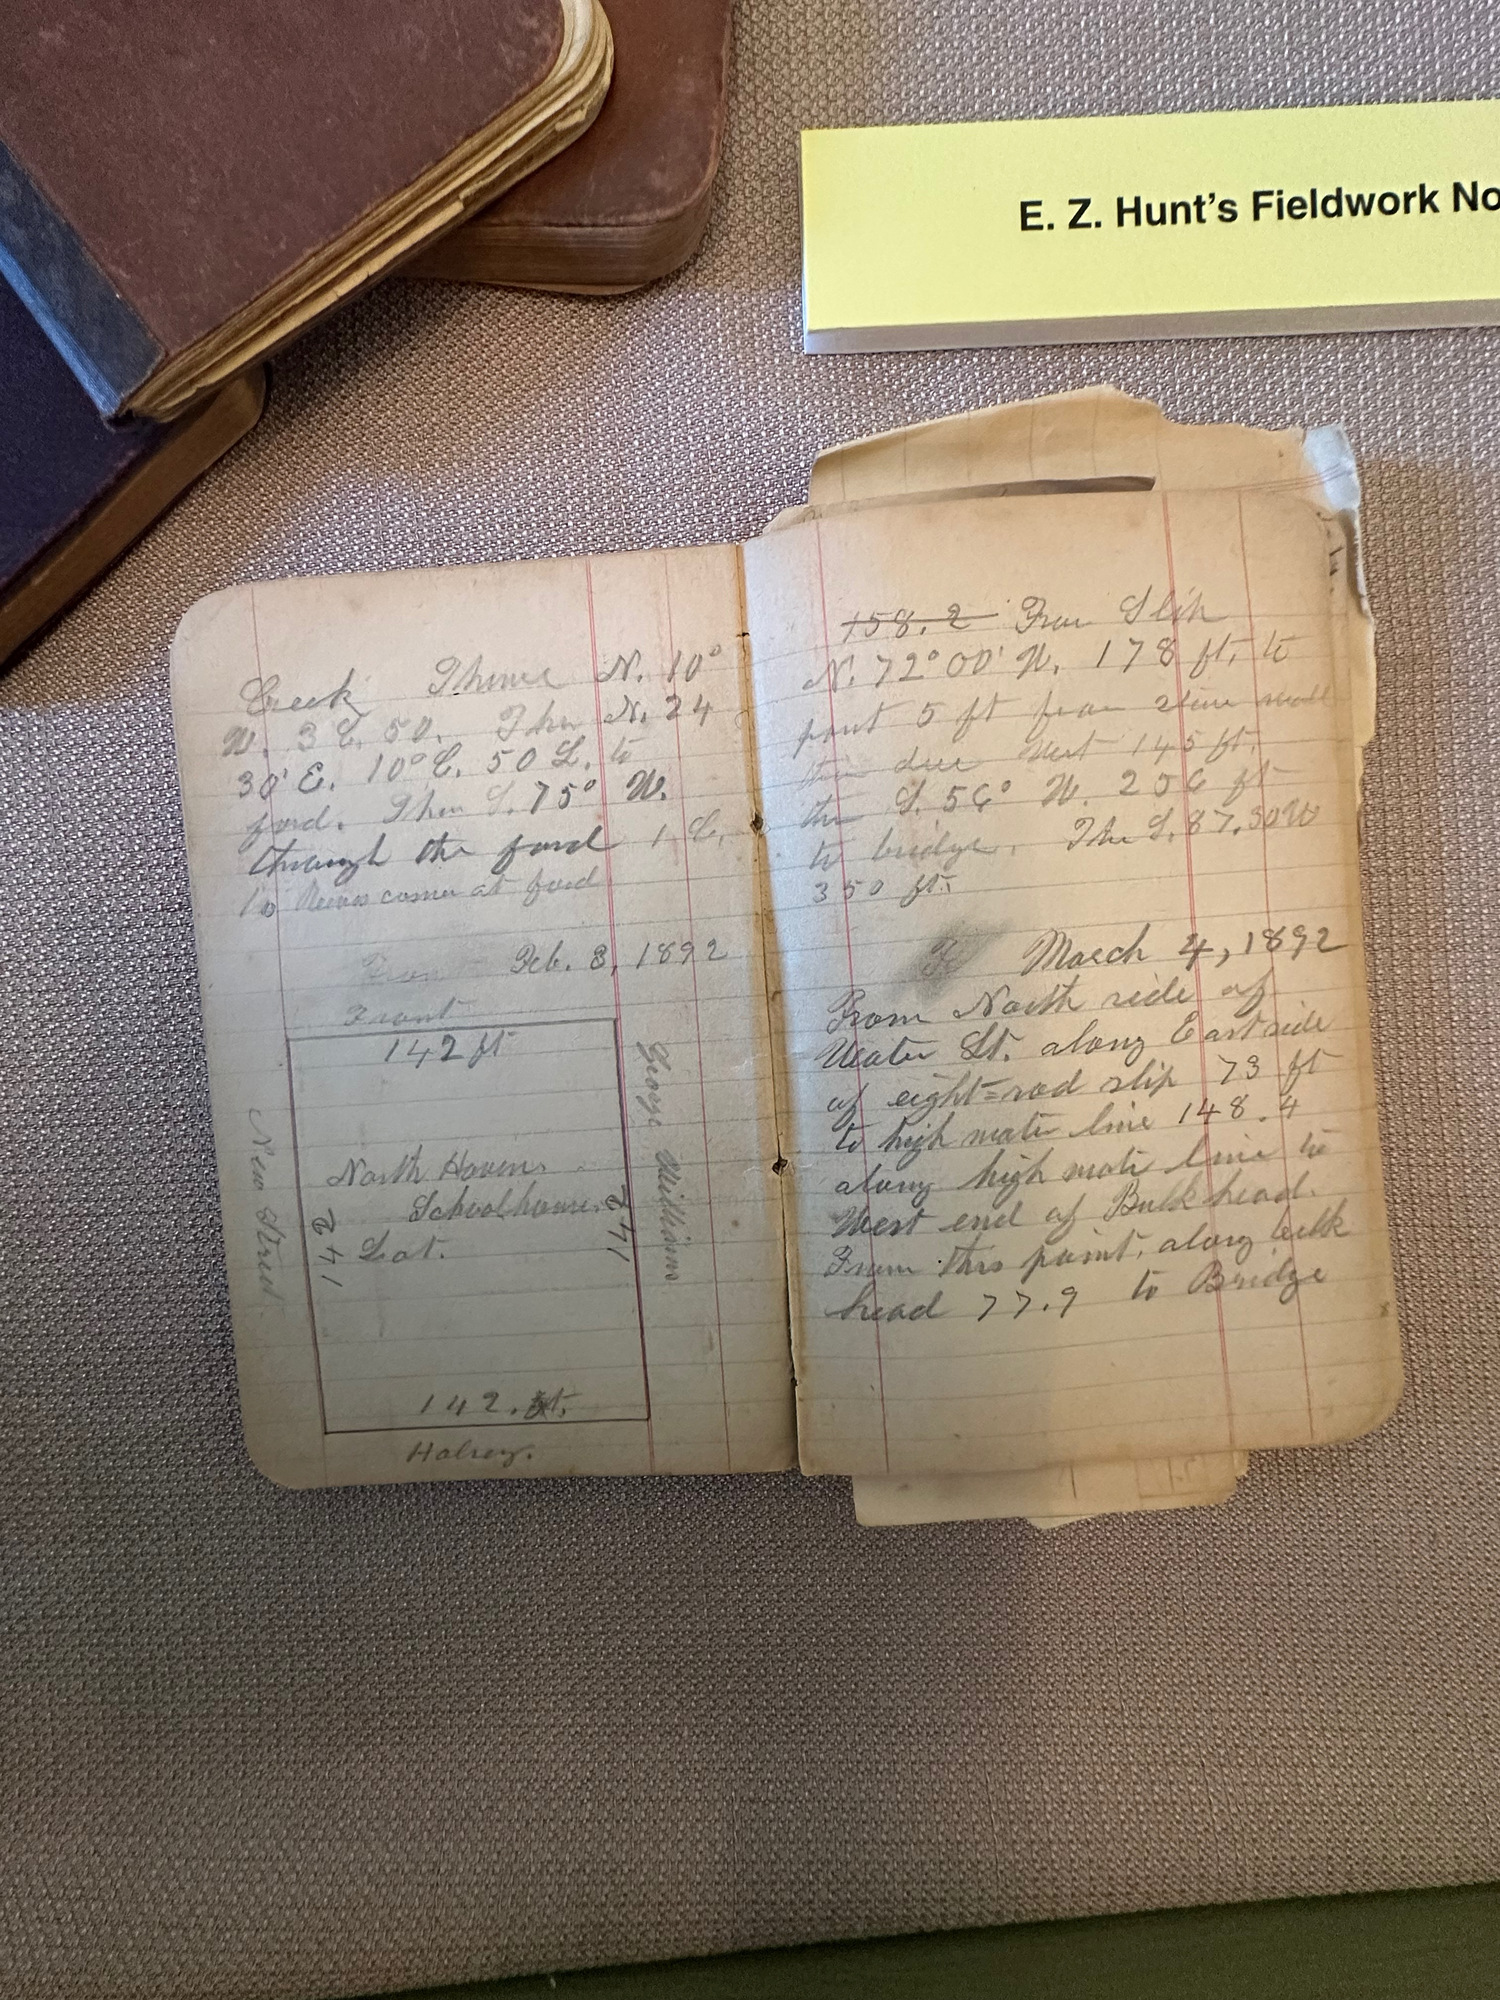 E. Z. Hunt's Fieldwork No
Creek Thence N. 10°
W. 3 C. 50. Then N. 24
30' E. 10° C. 50 L. to
ford. Then S. 75° W.
through the ford 1 C.
to Reeves corner at ford
Feb. 3, 1892
Front
142 ft
North Haven
Schoolhouse
Lot.
142
142
142. ft.
New Street
George Williams
Halsey.
158.2 From Slip
N. 72° 00' W. 178 ft. to
point 5 ft from stone wall
then due West 145 ft.
then S. 56° W. 256 ft
to bridge. The S. 87.30 W
350 ft.
March 4, 1892
From North side of
Water St. along East side
of eight=rod slip 73 ft
to high water line 148.4
along high water line to
West end of Bulkhead.
From this point, along bulk
head 77.9 to Bridge